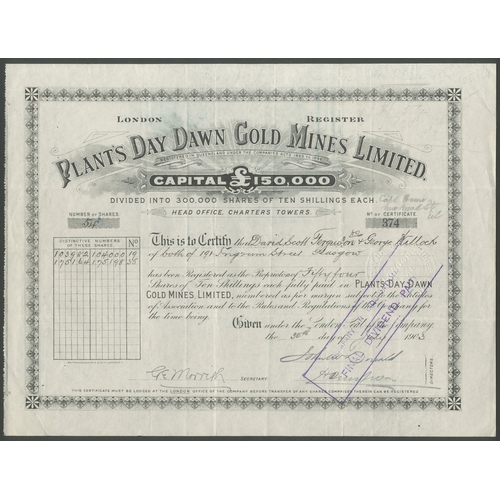 LONDON REGISTER
PLANT'S DAY DAWN GOLD MINES LIMITED.
CAPITAL £150,000
DIVIDED INTO 300,000 SHARES OF TEN SHILLINGS EACH.
HEAD OFFICE, CHARTERS TOWERS.
NUMBER OF SHARES
54
No OF CERTIFICATE
374
DISTINCTIVE NUMBERS OF THESE SHARES.
No
103982 104000 19
175164 175198 35
This is to Certify that David Scott Ferguson & George Killock
of both of 191 Street Glasgow
has been Registered as the Proprietor of Fifty four
Shares of Ten Shillings each fully paid in PLANT'S DAY DAWN
GOLD MINES, LIMITED, numbered as per margin subject to the Articles
of Association and to the Rules and Regulations of the Company for
the time being.
Given under the London Seal of the Company
the 30th day of 1903
FINAL DIVIDEND PAID
SECRETARY
DIRECTORS
THIS CERTIFICATE MUST BE LEFT AT THE LONDON OFFICE OF THE COMPANY BEFORE TRANSFER OF ANY SHARES COMPRISED THEREIN CAN BE REGISTERED